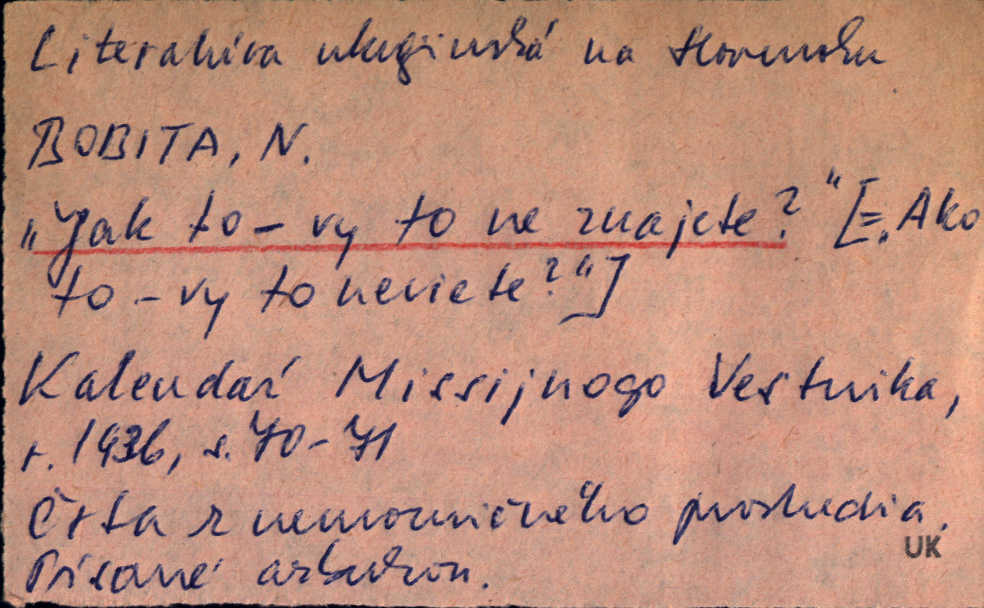 Literatúra ukrajinská na Slovensku
BOBITA, N.
„Jak to – vy to ne znajete?“ [=„Ako
to – vy to neviete?“]
Kalendař Missijnogo Vestnika,
r. 1936, s. 70-71
Črta z nemocničného prostredia.
Písané azbukou.
UK